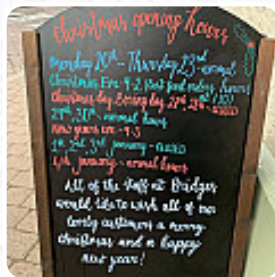 Christmas opening hours
Monday 20th - Thursday 23rd - normal
Christmas Eve - 9-2
Christmas day, Boxing day, 27th, 28th - CLOSED
29th, 30th - normal hours
New years eve - 9-3
1st, 2nd, 3rd, January - CLOSED
4th January - normal hours
All of the staff at Bridges
would like to wish all of our
lovely customers a merry
christmas and a happy
new year!